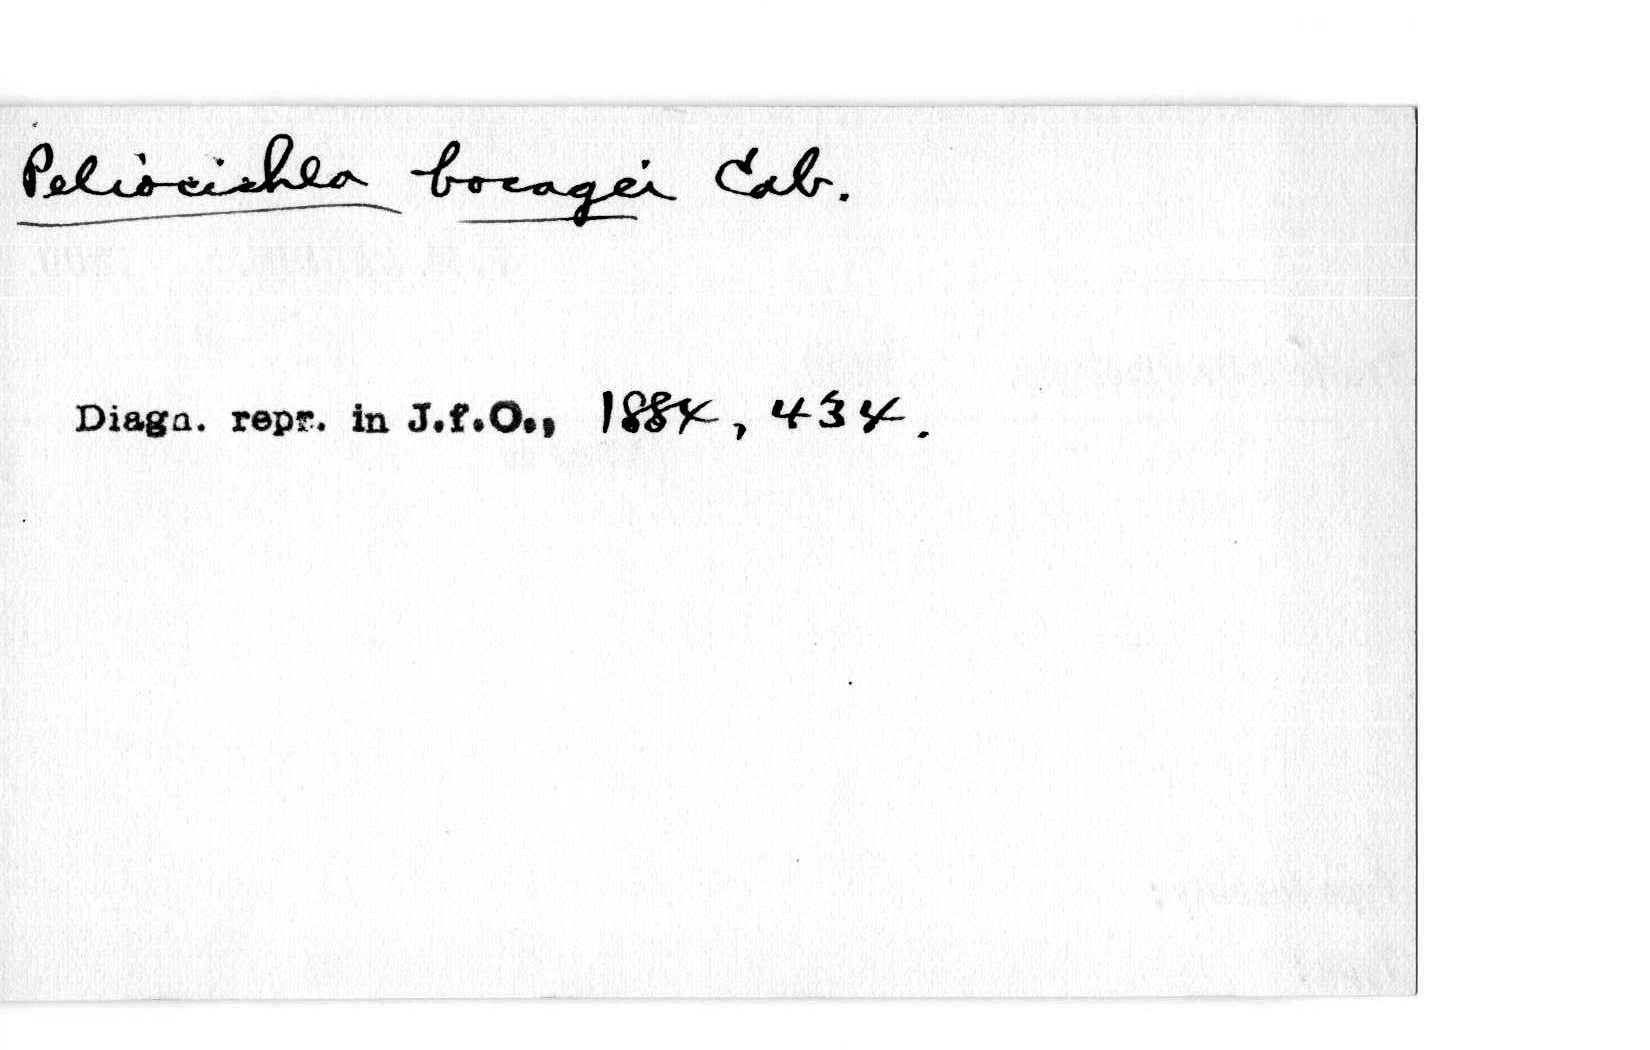 Peliocichla bocagei Cab.
Diagn. repr. in J.f.O., 1884, 434.